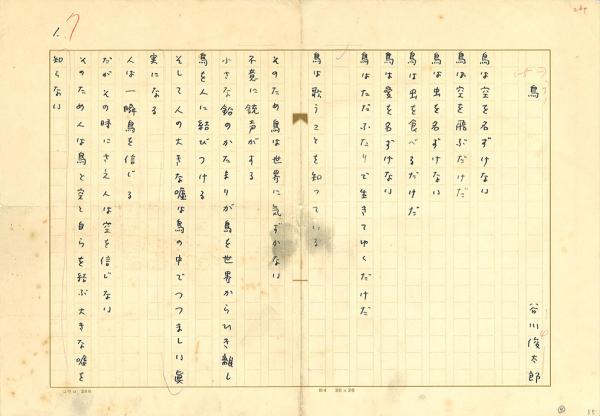 鳥
谷川俊太郎
鳥は空を名ずけない
鳥は空を飛ぶだけだ
鳥は虫を名ずけない
鳥は虫を食べるだけだ
鳥は愛を名ずけない
鳥はただふたりで生きてゆくだけだ
鳥は歌うことを知っている
そのため鳥は世界に気ずかない
不意に銃声がする
小さな鉛のかたまりが鳥を世界からひき離し
鳥を人に結びつける
そして人の大きな嘘は鳥の中でつつましい眞
実になる
人は一瞬鳥を信じる
だがその時にさえ人は空を信じない
そのため人は鳥と空と自らを結ぶ大きな嘘を
知らない